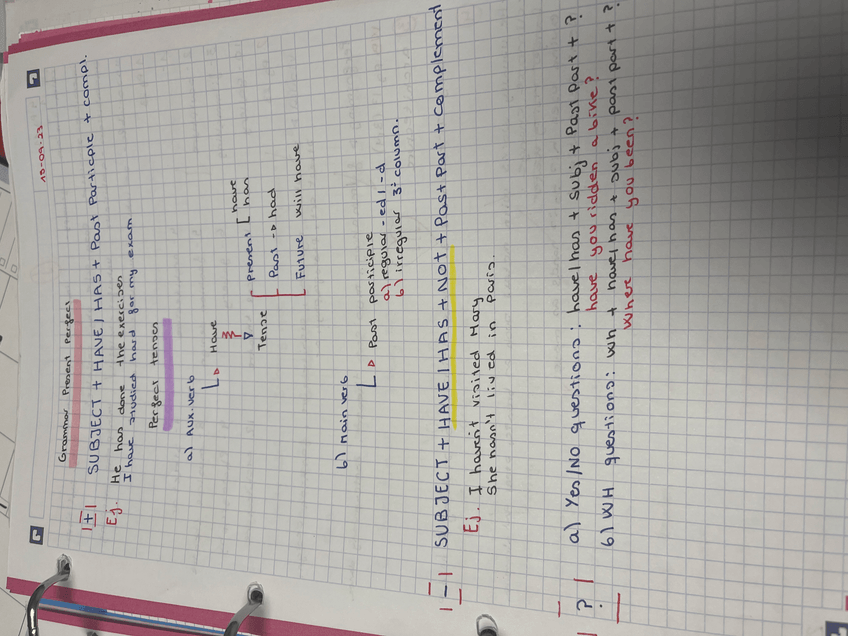 10-09-23
Grammar Present Perfect
|+| SUBJECT + HAVE / HAS + Past Participle + compl.
Ej. He has done the exercises
I have studied hard for my exam
Perfect tenses
a) Aux. verb
Have
Tense
Present [ have
has
Past → had
Future will have
b) Main verb
Past participle
a) regular -ed / -d
b) irregular 3ª column.
|-| SUBJECT + HAVE / HAS + NOT + Past Part + Complement
Ej. I haven't visited Mary
She hasn't lived in Paris.
|?|
a) Yes/NO questions: have/has + subj + Past part + ?
have you ridden a bike?
b) WH questions: wh + have/has + subj + past part + ?
Where have you been?